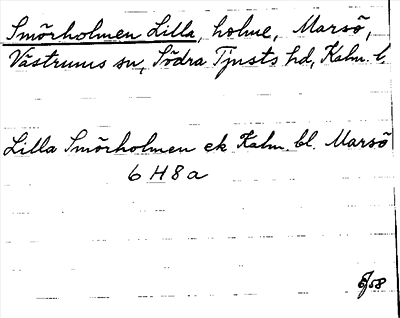 Smörholmen Lilla, holme, Marsö,
Västrums sn, Södra Tjusts hd, Kalm. l.
Lilla Smörholmen ek Kalm. bl. Marsö
6 H 8 a
/58